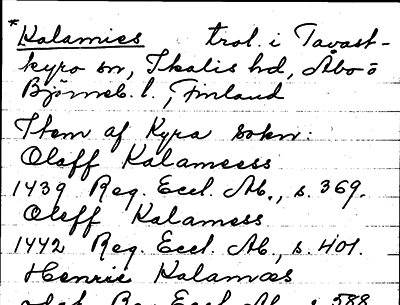 *Kalamies trol. i Tavast-
kyro sn, Ikalis hd, Åbo o
Björneb. l., Finland
Item af Kyra sokn:
Olaff Kalameess
1439 Reg. Eccl. Ab., s. 369.
Oleff Kalamess
1442 Reg. Eccl. Ab., s. 401.
Henric Kalamæs
Reg. Eccl. Ab. s. 588